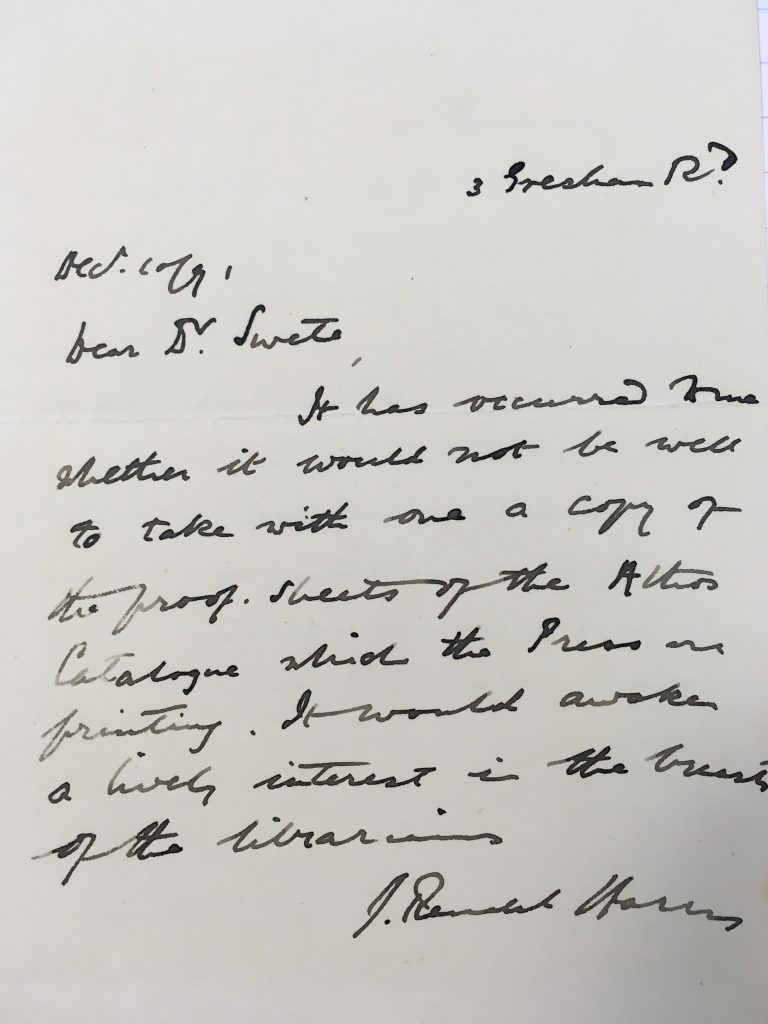 3 Gresham Rd.
Dec. 10/91
Dear Dr. Swete,
It has occurred to me
whether it would not be well
to take with one a copy of
the proof-sheets of the Athos
Catalogue which the Press are
printing. It would awaken
a lively interest in the breasts
of the librarians
J. Rendel Harris